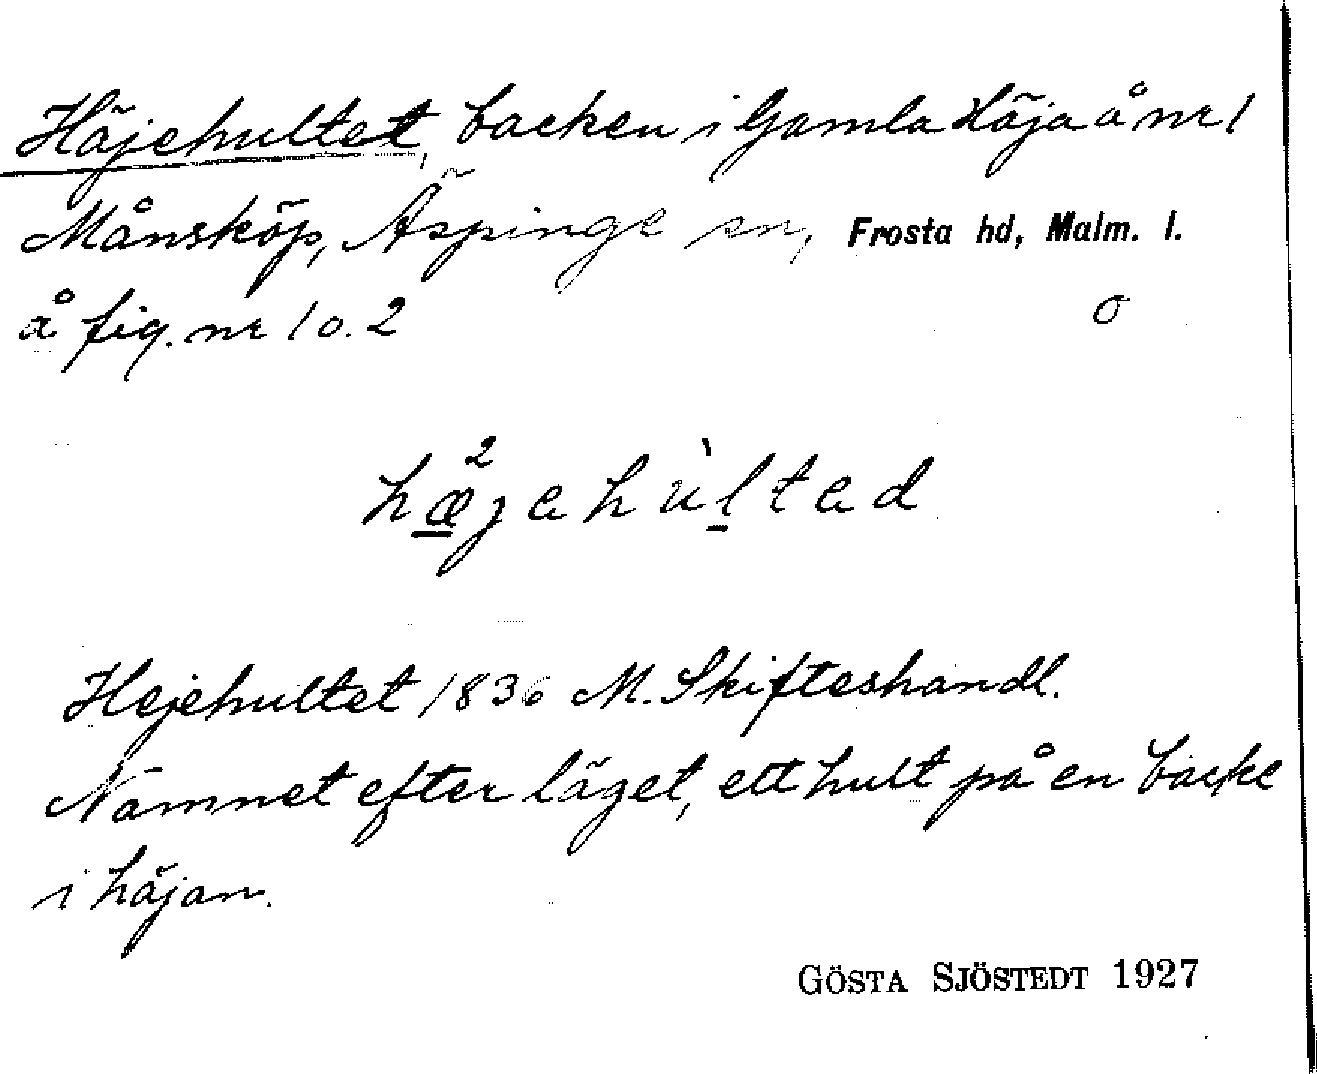 Häjehultet, backen i Gamla Häja å nr 1
Månsköp, Äspinge sn, Frosta hd, Malm. l.
å fig. nr 1 o. 2
o
hæ²jehùltad
Hejehultet 1836 M. Skifteshandl.
Namnet efter läget, ett hult på en backe
i häjan.
GÖSTA SJÖSTEDT 1927